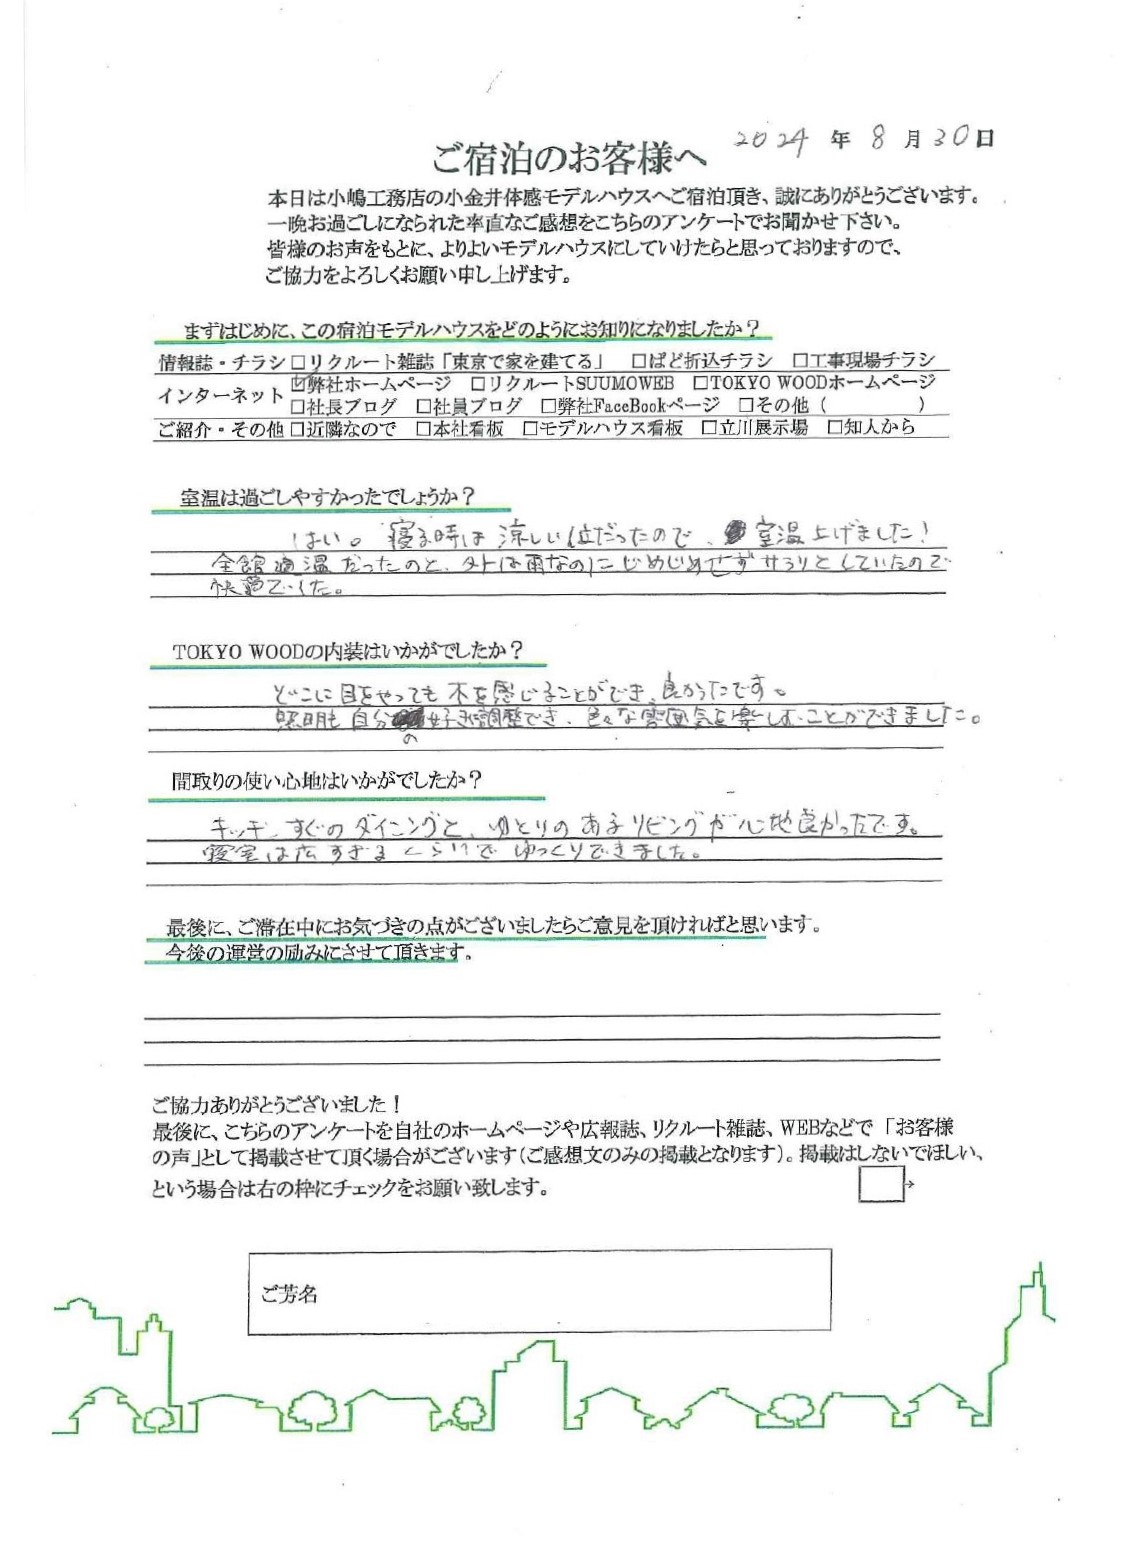 2024 年 8 月 30 日
ご宿泊のお客様へ
本日は小嶋工務店の小金井体感モデルハウスへご宿泊頂き、誠にありがとうございます。
一晩お過ごしになられた率直なご感想をこちらのアンケートでお聞かせ下さい。
皆様のお声をもとに、よりよいモデルハウスにしていけたらと思っておりますので、
ご協力をよろしくお願い申し上げます。
まずはじめに、この宿泊モデルハウスをどのようにお知りになりましたか？
情報誌・チラシ □リクルート雑誌「東京で家を建てる」 □ぱど折込チラシ □工事現場チラシ
インターネット ☑弊社ホームページ □リクルートSUUMOWEB □TOKYO WOODホームページ
□社長ブログ □社員ブログ □弊社FaceBookページ □その他（ ）
ご紹介・その他 □近隣なので □本社看板 □モデルハウス看板 □立川展示場 □知人から
室温は過ごしやすかったでしょうか？
はい。寝る時は涼しい位だったので、室温上げました！
全館適温だったのと、外は雨なのにじめじめせずサラリとしていたので
快適でした。
TOKYO WOODの内装はいかがでしたか？
どこに目をやっても木を感じることができ、良かったです。
照明も自分の好きに調整でき、色々な雰囲気を楽しむことができました。
間取りの使い心地はいかがでしたか？
キッチンすぐのダイニングと、ゆとりのあるリビングが心地良かったです。
寝室は広すぎるくらいでゆっくりできました。
最後に、ご滞在中にお気づきの点がございましたらご意見を頂ければと思います。
今後の運営の励みにさせて頂きます。
ご協力ありがとうございました！
最後に、こちらのアンケートを自社のホームページや広報誌、リクルート雑誌、WEBなどで「お客様
の声」として掲載させて頂く場合がございます（ご感想文のみの掲載となります）。掲載はしないでほしい、
という場合は右の枠にチェックをお願い致します。
ご芳名